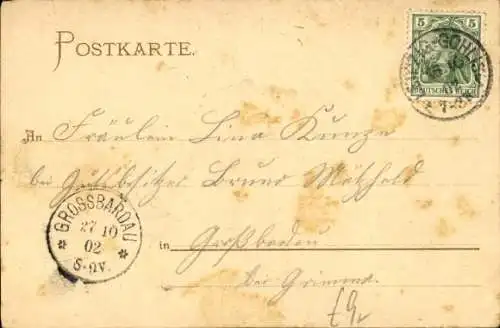 POSTKARTE.
5 5
DEUTSCHES REICH
LEIPZIG-GOHLIS
An Fräulein Lina Kunze
bei Gutsbesitzer Bruno
GROSSBARDAU
27 10
02
5-6V.
in Großbardau
bei Grimma.